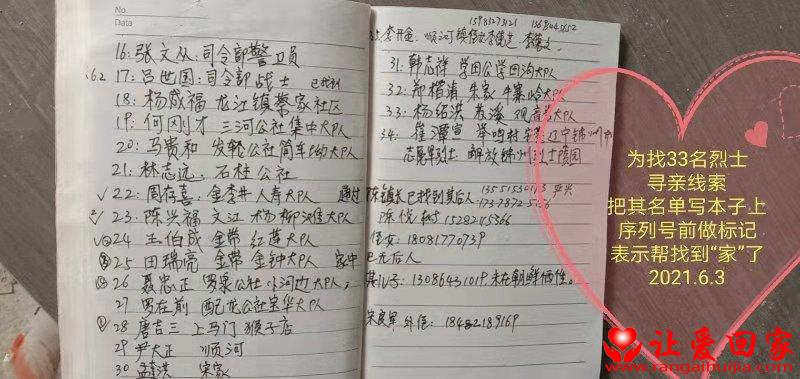 No.
Data
16:张文从:司令部警卫员
62 17:吕世国:司令部战士 已找到
18:杨成福 龙江镇蔡家社区
19:何刚才 三河公社集中大队
20:马贵和 发轮公社筒车坳大队
21:林志远:石柱公社
✓22:周存喜:金李井人寿大队 通过
✓23:陈兴福 文江 杨柳沟住大队
✓24 王伯成 金带 红莲大队
25 田瑞亮 金带 金钟大队 家中
26 聂忠正 罗泉公社 小河边大队,
27 罗在前 配龙公社宝华大队
28 唐吉三 上马门 猴子店
29 尹大正 顺河
30 孟 洪 宋家
15981273121
35.李开金: 顺河
31:韩志祥 学田公学田沟大队
32:郑楷清 朱家 牛寨哈大队
33:杨绍洪 苏溪 观音 大队
34:崔潭宣 举鸣村 辽宁锦州
志愿军烈士 解放锦州烈士陵园
陈镇长已找到其后人
陈 15292145366
侄女:18081770739
已无后人
其儿子:13086431019,未在朝鲜牺牲。
宋良军 外侄:18482189169
为找33名烈士
寻亲线索
把其名单写本子上
序列号前做标记
表示帮找到“家”了
2021.6.3
让爱回家
www.rangaihuijia.com